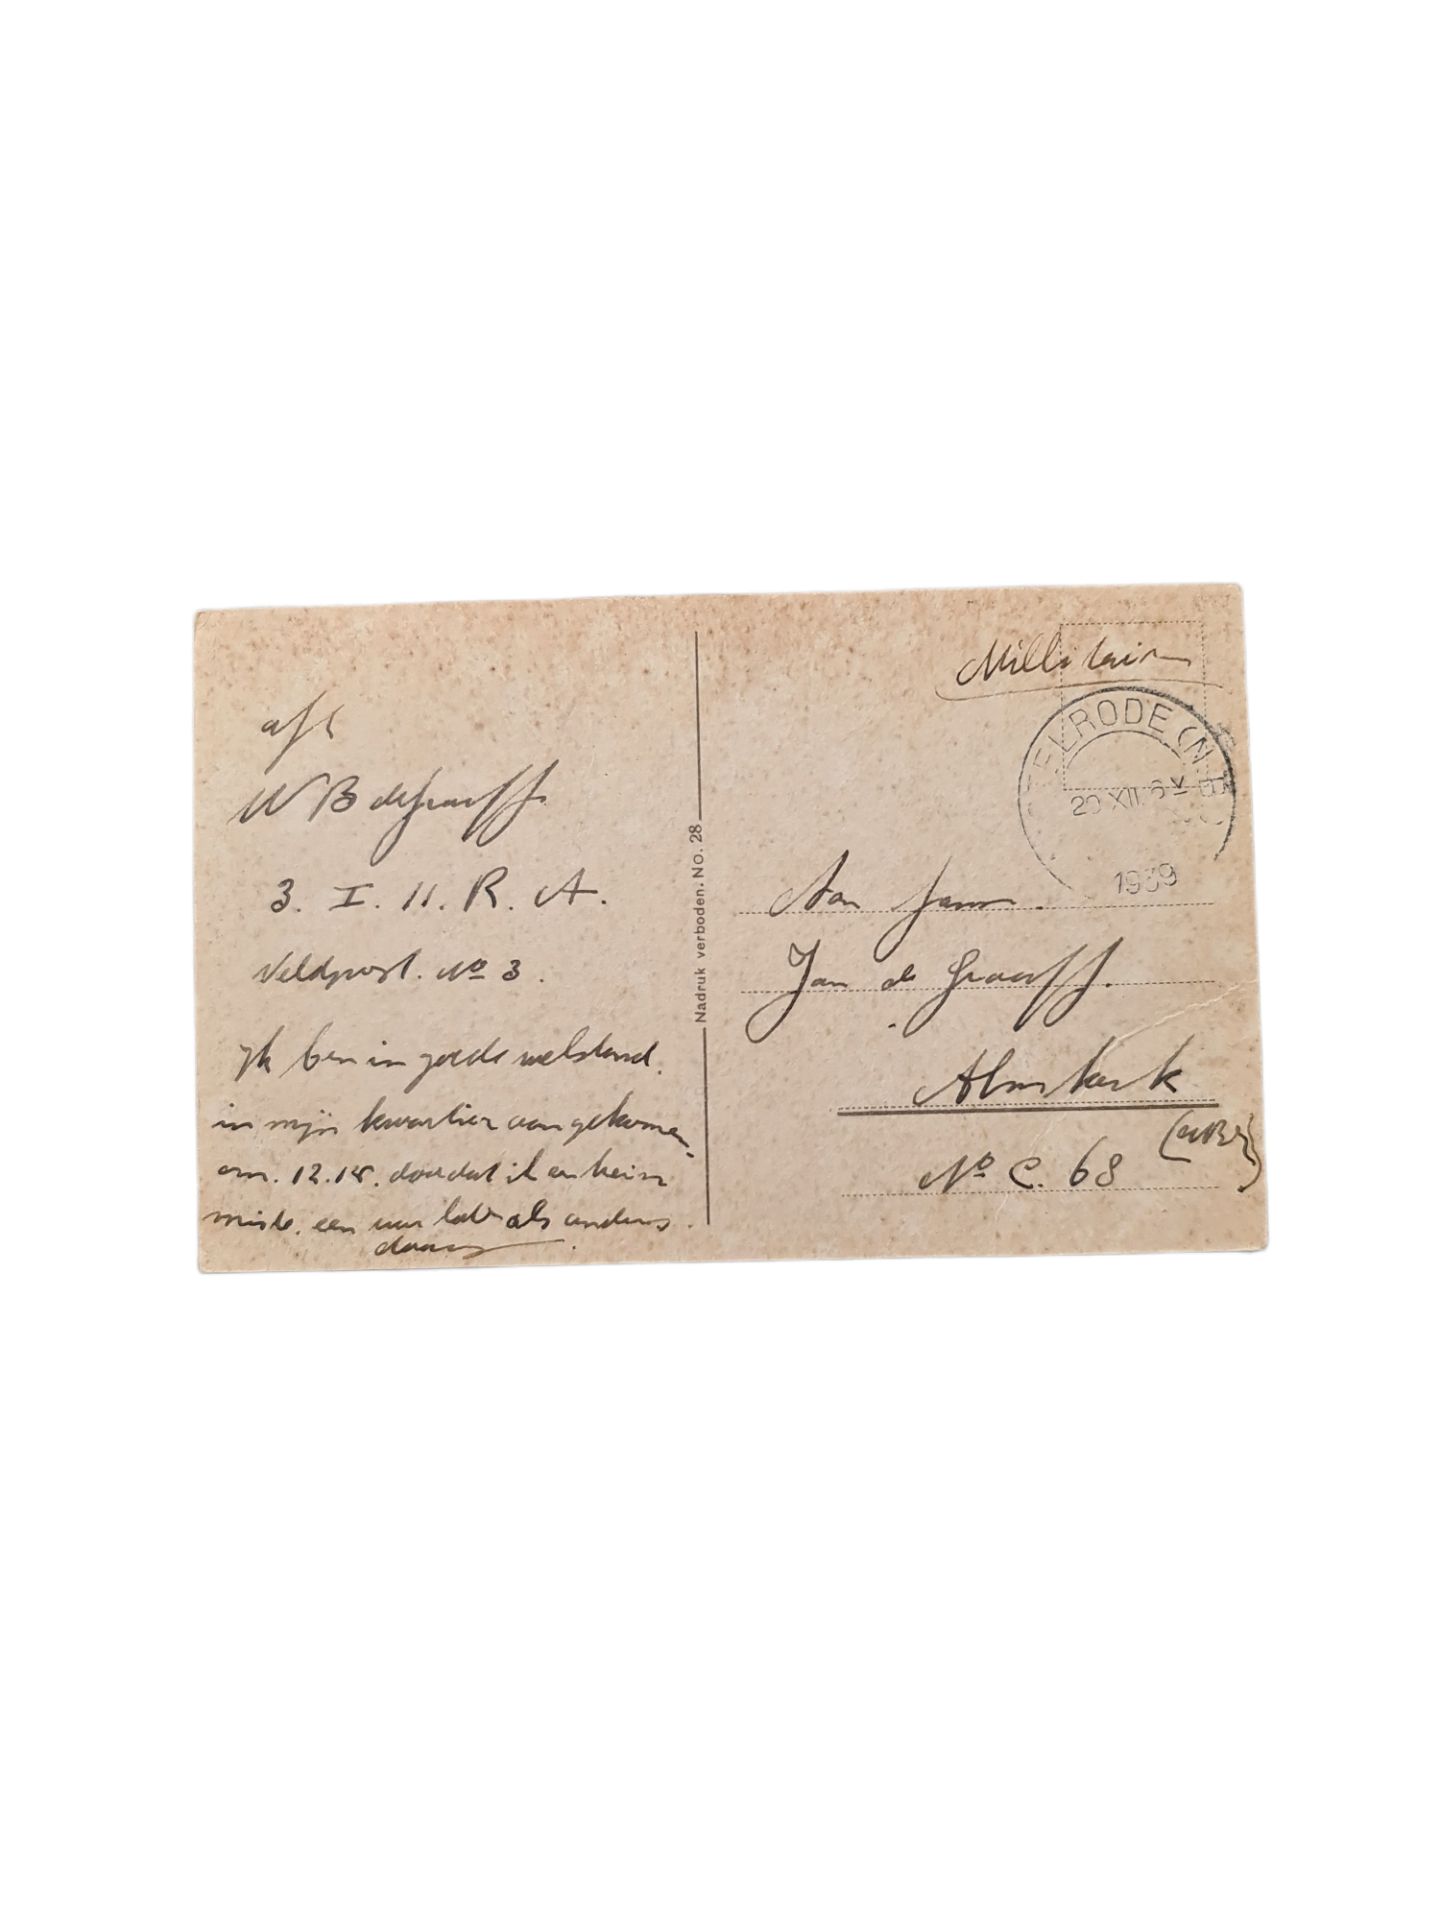 afz
W B de Graaff.
3. I. 11. R. A.
Veldpost. No 3.
ik ben in goede welstand.
in mijn kwartier aangekomen,
om. 12.15. doordat ik en trein
miste. een uur later als anders.
Nadruk verboden. NO. 28
Millitair
ELRODE (N.B.)
20 XII. 6 V
1939
Aan fam.
Jan de Graaff.
Almkerk
(NBr)
No C. 68